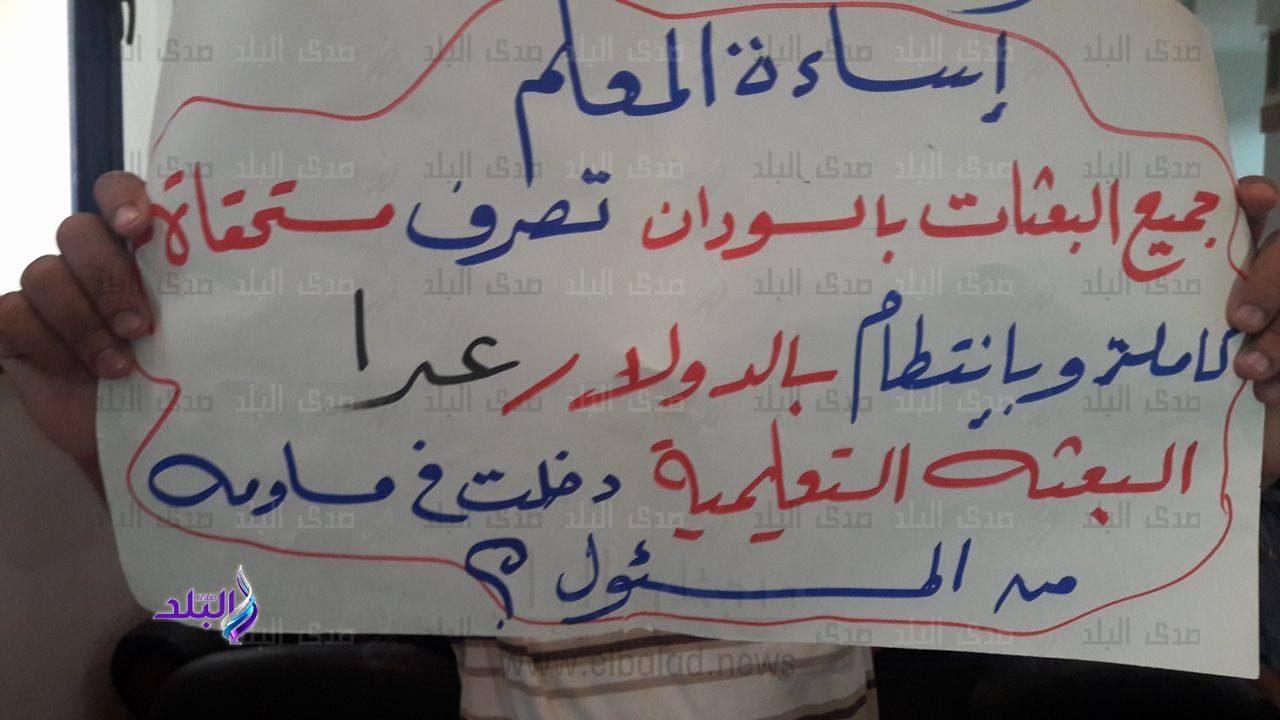 إساءة المعلم
جميع البعثات بالسودان تصرف مستحقاة
كاملة وبإنتظام بالدولار عدا
البعثه التعليمية دخلت في مساومه
من المسئول ؟
صدى البلد
www.elbalad.news